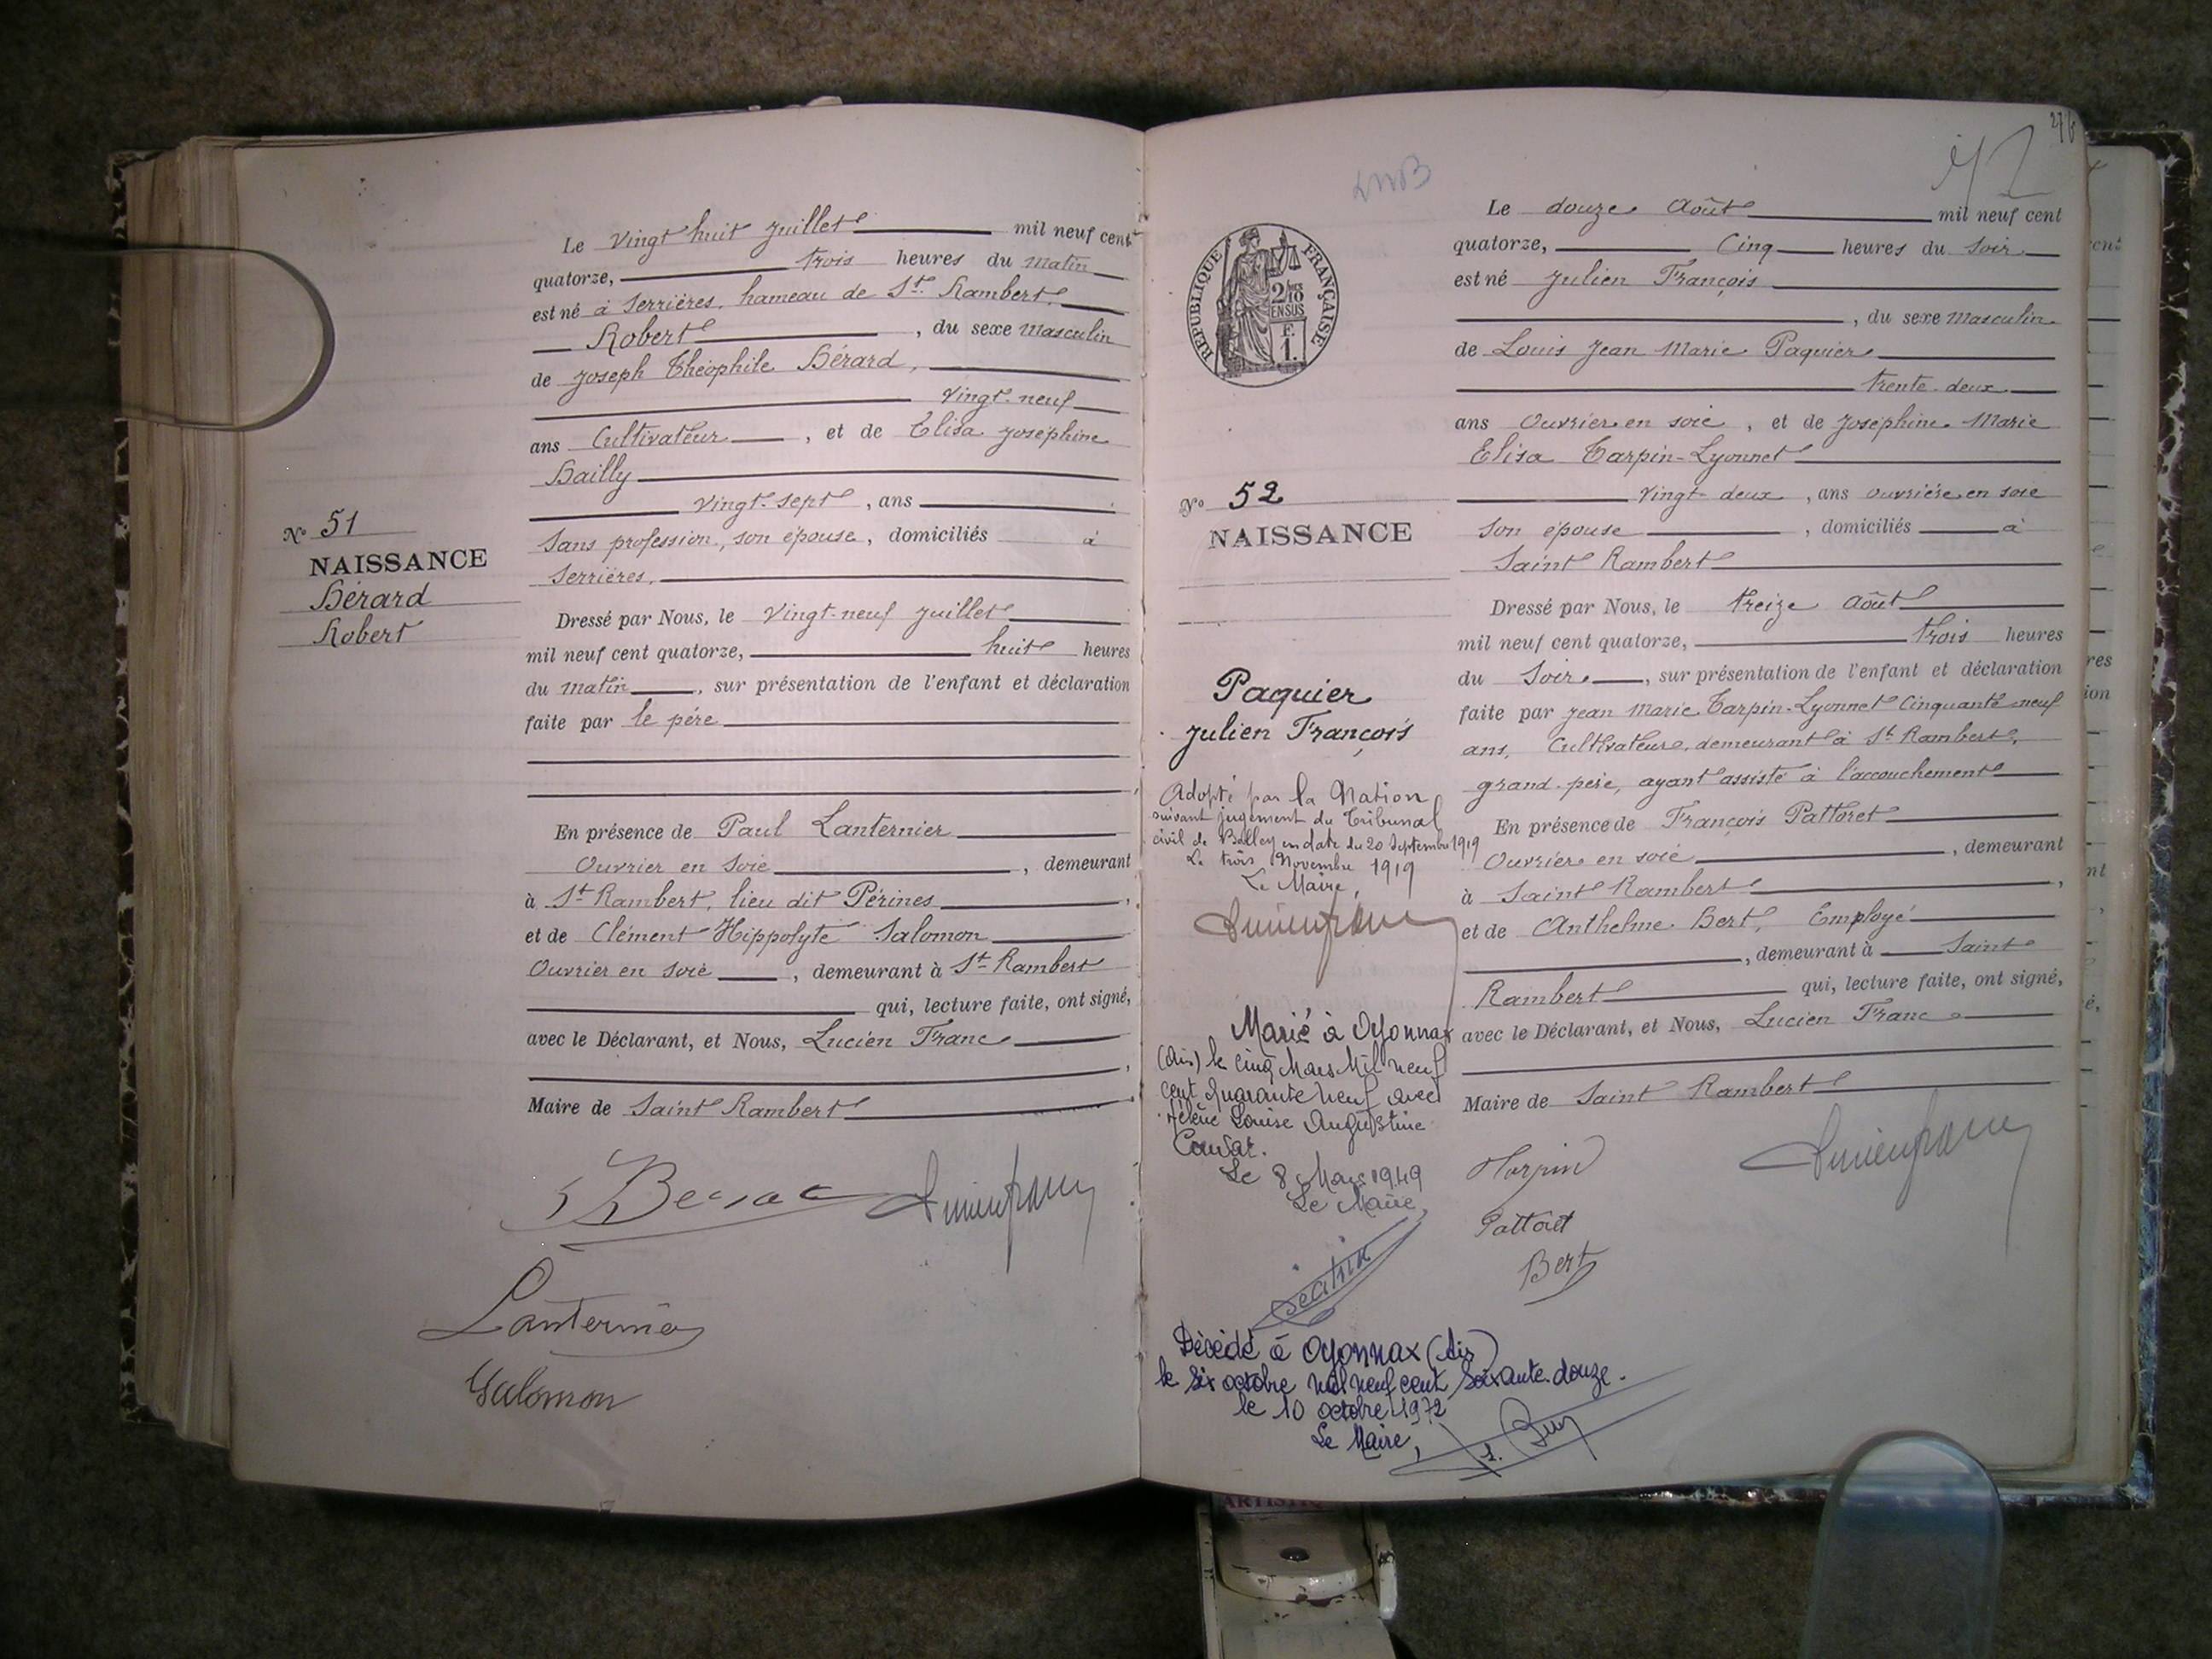 Le vingt huit juillet mil neuf cent
quatorze, trois heures du matin
est né à Serrières, hameau de St. Rambert.
Robert, du sexe masculin
de Joseph Théophile Bérard,
vingt-neuf
ans Cultivateur, et de Elisa Joséphine
Bailly
vingt-sept, ans
Sans profession, son épouse, domiciliés à
Serrières.
Dressé par Nous, le vingt-neuf juillet
mil neuf cent quatorze, huit heures
du matin, sur présentation de l'enfant et déclaration
faite par le père
En présence de Paul Lanternier
Ouvrier en soie, demeurant
à St Rambert, lieu dit Pérines,
et de Clément Hippolyte Salomon
Ouvrier en soie, demeurant à St-Rambert
qui, lecture faite, ont signé,
avec le Déclarant, et Nous, Lucien Franc,
Maire de Saint Rambert
No 51
NAISSANCE
Bérard
Robert
Lanternier
Salomon
276
52
RÉPUBLIQUE FRANÇAISE
2/10
EN SUS
F.
1.
Le douze Août mil neuf cent
quatorze, Cinq heures du soir
est né Julien François
, du sexe masculin
de Louis Jean Marie Paquier
trente-deux
ans Ouvrier en soie, et de Joséphine Marie
Elisa Tarpin-Lyonnet
vingt-deux, ans ouvrière en soie
son épouse, domiciliés à
Saint Rambert
Dressé par Nous, le treize Août
mil neuf cent quatorze, trois heures
du Soir, sur présentation de l'enfant et déclaration
faite par Jean Marie Tarpin-Lyonnet Cinquante-neuf
ans, Cultivateur, demeurant à St Rambert,
grand-père, ayant assisté à l'accouchement
En présence de François Pattoret
Ouvrier en soie, demeurant
à Saint Rambert,
et de Anthelme Bert, Employé
, demeurant à Saint
Rambert qui, lecture faite, ont signé,
avec le Déclarant, et Nous, Lucien Franc
Maire de Saint Rambert
No 52
NAISSANCE
Paquier
Julien François
Adopté par la Nation
suivant jugement du Tribunal
civil de Belley en date du 20 Septembre 1919
Le trois Novembre 1919
Le Maire,
Marié à Oyonnax
(Ain) le cinq Mars Mil neuf
cent quarante neuf avec
Hélène Louise Augustine
Le 8 Mars 1949
Le Maire,
Décédé à Oyonnax (Ain)
le six octobre mil neuf cent soixante-douze.
le 10 octobre 1972
Le Maire,
Tarpin
Pattoret
Bert